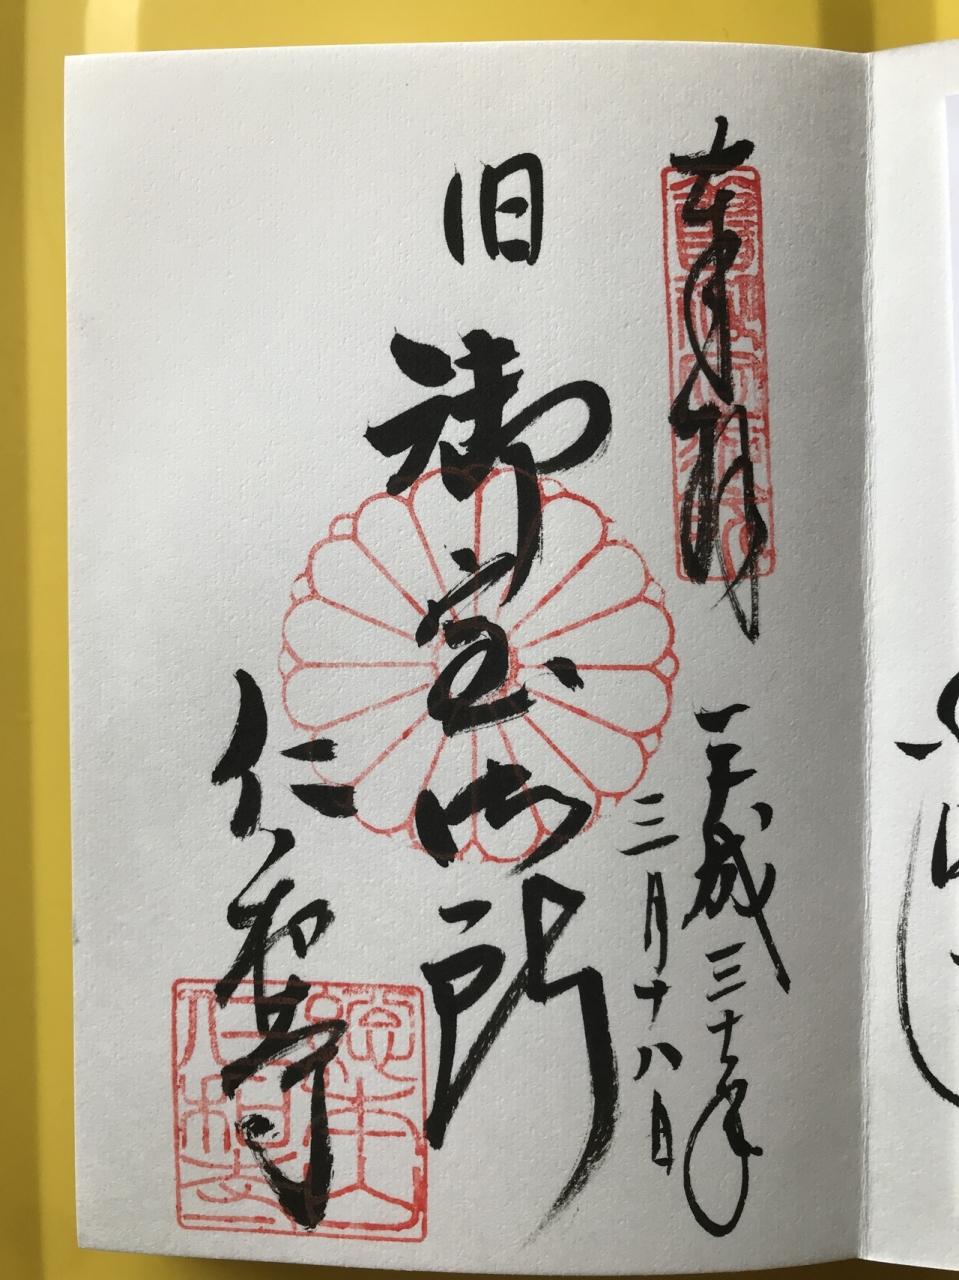 奉拝
平成三十年
三月十八日
旧御室御所
仁和寺